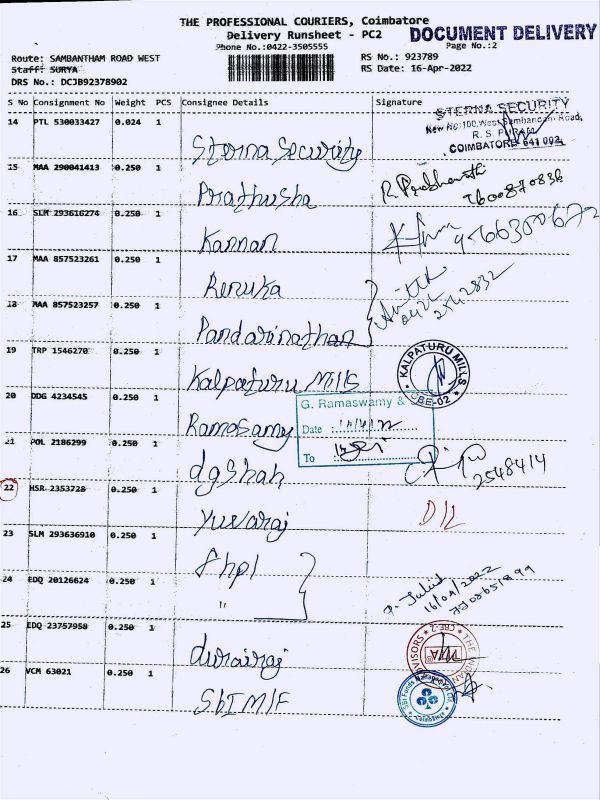 THE PROFESSIONAL COURIERS, Coimbatore
Delivery Runsheet - PC2
DOCUMENT DELIVERY
Phone No.:0422-3505555
Page No.:2
Route: SAMBANTHAM ROAD WEST
RS No.: 923789
Staff: SURYA
RS Date: 16-Apr-2022
DRS No.: DCJB92378902
S No Consignment No Weight PCS Consignee Details Signature
14 PTL 530033427 0.024 1 Sterna Security
STERNA SECURITY
New No:100,West Sambandam Road,
R. S. PURAM
COIMBATORE- 641 002
15 MAA 290041413 0.250 1 Prathusha
R. Prabhavathi
7600870836
16 SLM 293616274 0.250 1 Kannan
17 MAA 857523261 0.250 1 Renuka
0422
2542832
18 MAA 857523257 0.250 1 Pandarinathan
19 TRP 1546270 0.250 1 Kalpaturu Mills
KALPATURU MILLS
CBE-02
20 DDG 4234545 0.250 1 Ramasamy
G. Ramaswamy &
Date :
To :
21 POL 2186299 0.250 1 dgshah
2548414
22 HSR 2353728 0.250 1 Yuvaraj
D/L
23 SLM 293636910 0.250 1 Shpl
24 EDQ 20126624 1 "
16/04/2022
25 EDQ 23757958 0.250 1 durairaj
THE INDIAN
VISORS
CBE-2
26 VCM 63021 0.250 1 SbIMIF
SBI Funds